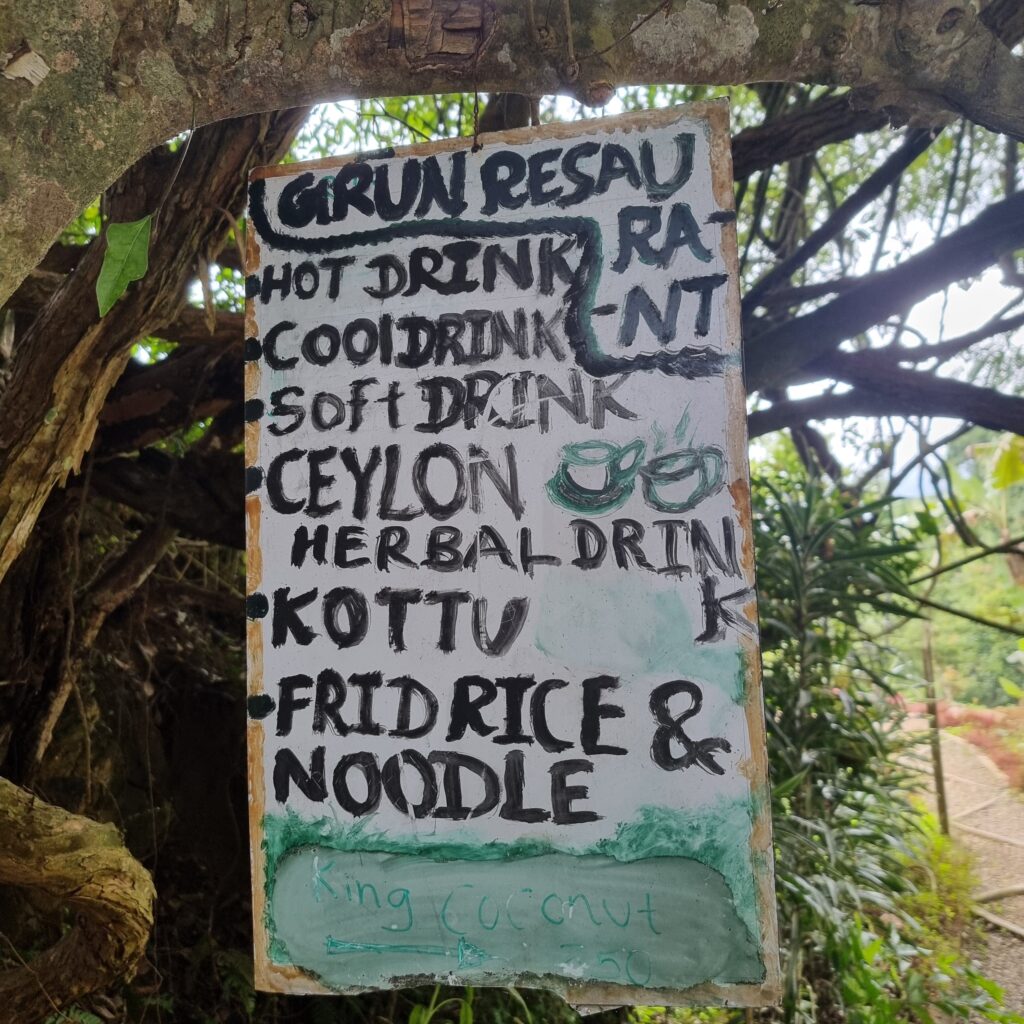 GRUN RESAU
RA-
-NT
HOT DRINK
COOlDRINK
SOft DRINK
CEYLON
HERBAL DRIN
K
KOTTU
FRID RICE &
NOODLE
King Coconut